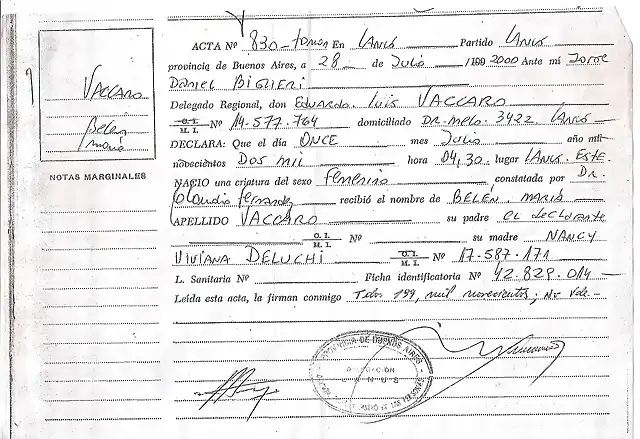 ACTA Nº 830-tomo1 En LANUS Partido LANUS
provincia de Buenos Aires, a 28 de Julio /199 2000 Ante mi Jorge
Daniel BIGLIERI
Delegado Regional, don EDUARDO LUIS VACCARO
O. I. M. I. Nº 14.577.764 domiciliado DR. MELO. 3422. LANUS
DECLARA: Que el día ONCE mes Julio año mil
novecientos DOS MIL hora 04,30. lugar LANUS. ESTE.
NACIO una criatura del sexo Femenino constatada por DR.
Claudio Fernandez recibió el nombre de BELEN. MARIA
APELLIDO VACCARO su padre EL declarante
O. I. M. I. Nº su madre NANCY
VIVIANA DELUCHI O. I. M. I. Nº 17-587-171
L. Sanitaria Nº Ficha identificatoria Nº 42.829.014
Leída esta acta, la firman conmigo Tdos 199, mil novecientos; No Vale-
VACCARO
Belen
Maria
NOTAS MARGINALES
PROVINCIA DE BUENOS AIRES
LANUS
DE LAS PERSONAS